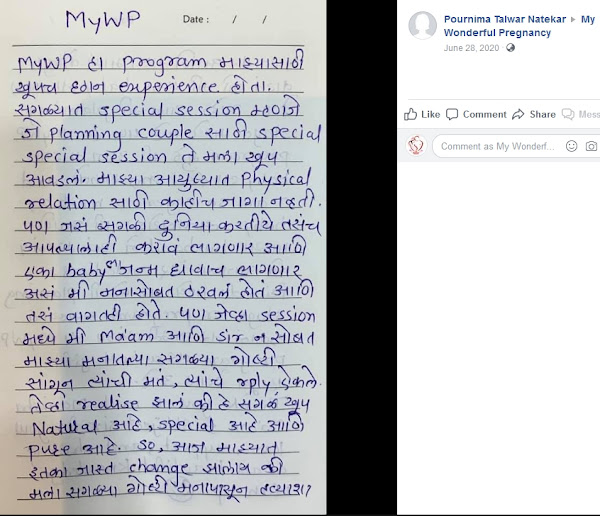 MyWP
Date : / /
MyWP हा program माझ्यासाठी
खूपच छान experience होता.
सगळ्यात special session म्हणजे
जे planning couple साठी special
special session ते मला खूप
आवडलं. माझ्या आयुष्यात Physical
relation साठी काहीच जागा नव्हती.
पण जसं सगळी दुनिया करतीये तसंच
आपल्यालाही करावं लागणार आणि
एका baby ला जन्म द्यावाच लागणार
असं मी मनासोबत ठरवलं होतं आणि
तसं वागतही होते. पण जेव्हा session
मध्ये मी Ma'am आणि सोबत
माझ्या मनातल्या सगळ्या गोष्टी
सांगून त्यांची मतं, त्यांचे rply ऐकले.
तेव्हा realise झालं की हे सगळं खूप
Natural आहे, special आहे आणि
pure आहे. so, आज माझ्यात
इतका जास्त change आलाय की
मला सगळ्या गोष्टी मनापासून
Pournima Talwar Natekar ▸ My
Wonderful Pregnancy
June 28, 2020 ·
Like Comment Share Mess
Comment as My Wonderf...